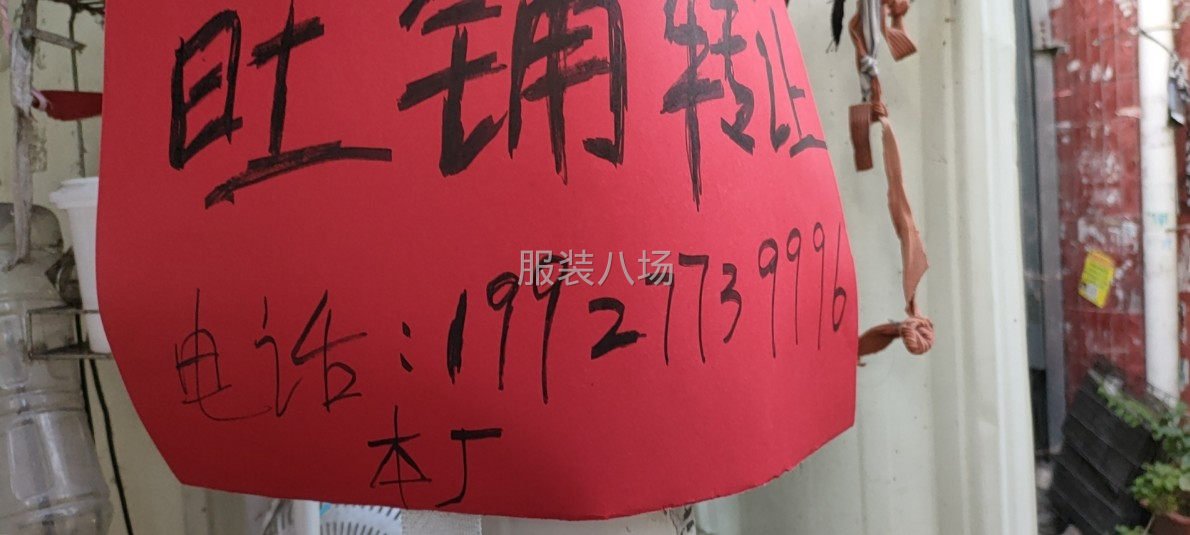 旺铺转让
服装八场
电话:19927739996
本厂